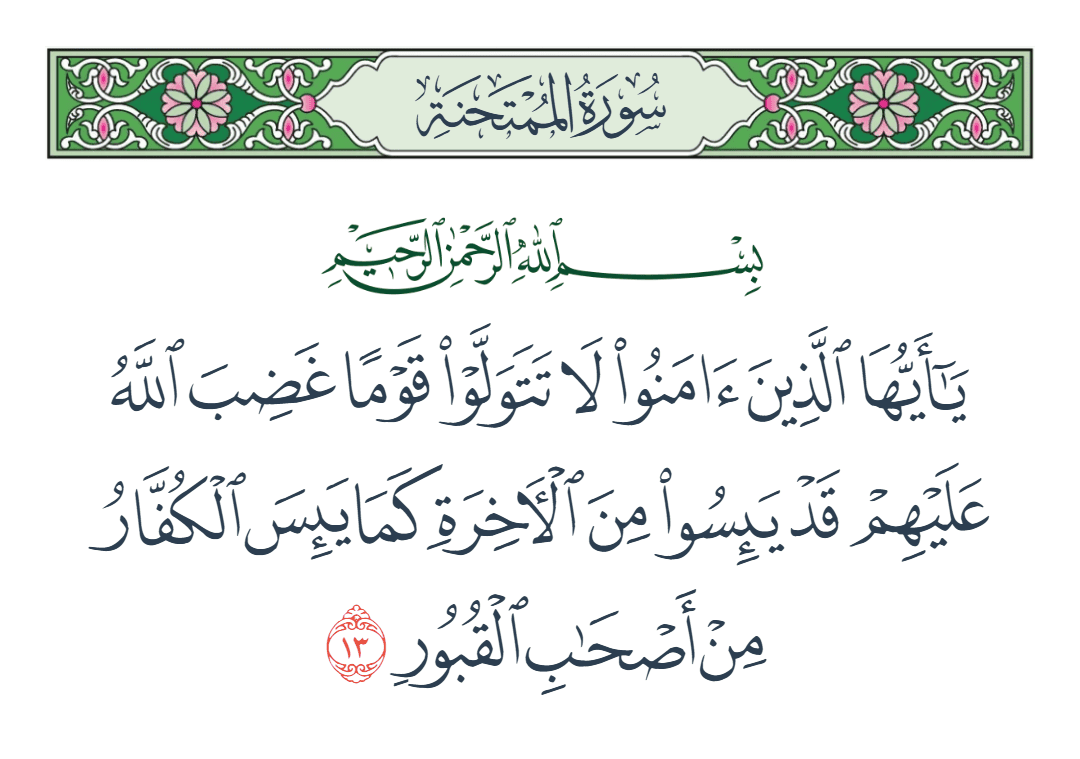 سُورَةُ المُمْتَحنَةِ
بِسْمِ ٱللَّهِ ٱلرَّحْمَٰنِ ٱلرَّحِيمِ
يَـٰٓأَيُّهَا ٱلَّذِينَ ءَامَنُوا۟ لَا تَتَوَلَّوْا۟ قَوْمًا غَضِبَ ٱللَّهُ
عَلَيْهِمْ قَدْ يَئِسُوا۟ مِنَ ٱلْـَٔاخِرَةِ كَمَا يَئِسَ ٱلْكُفَّارُ
مِنْ أَصْحَـٰبِ ٱلْقُبُورِ ١٣